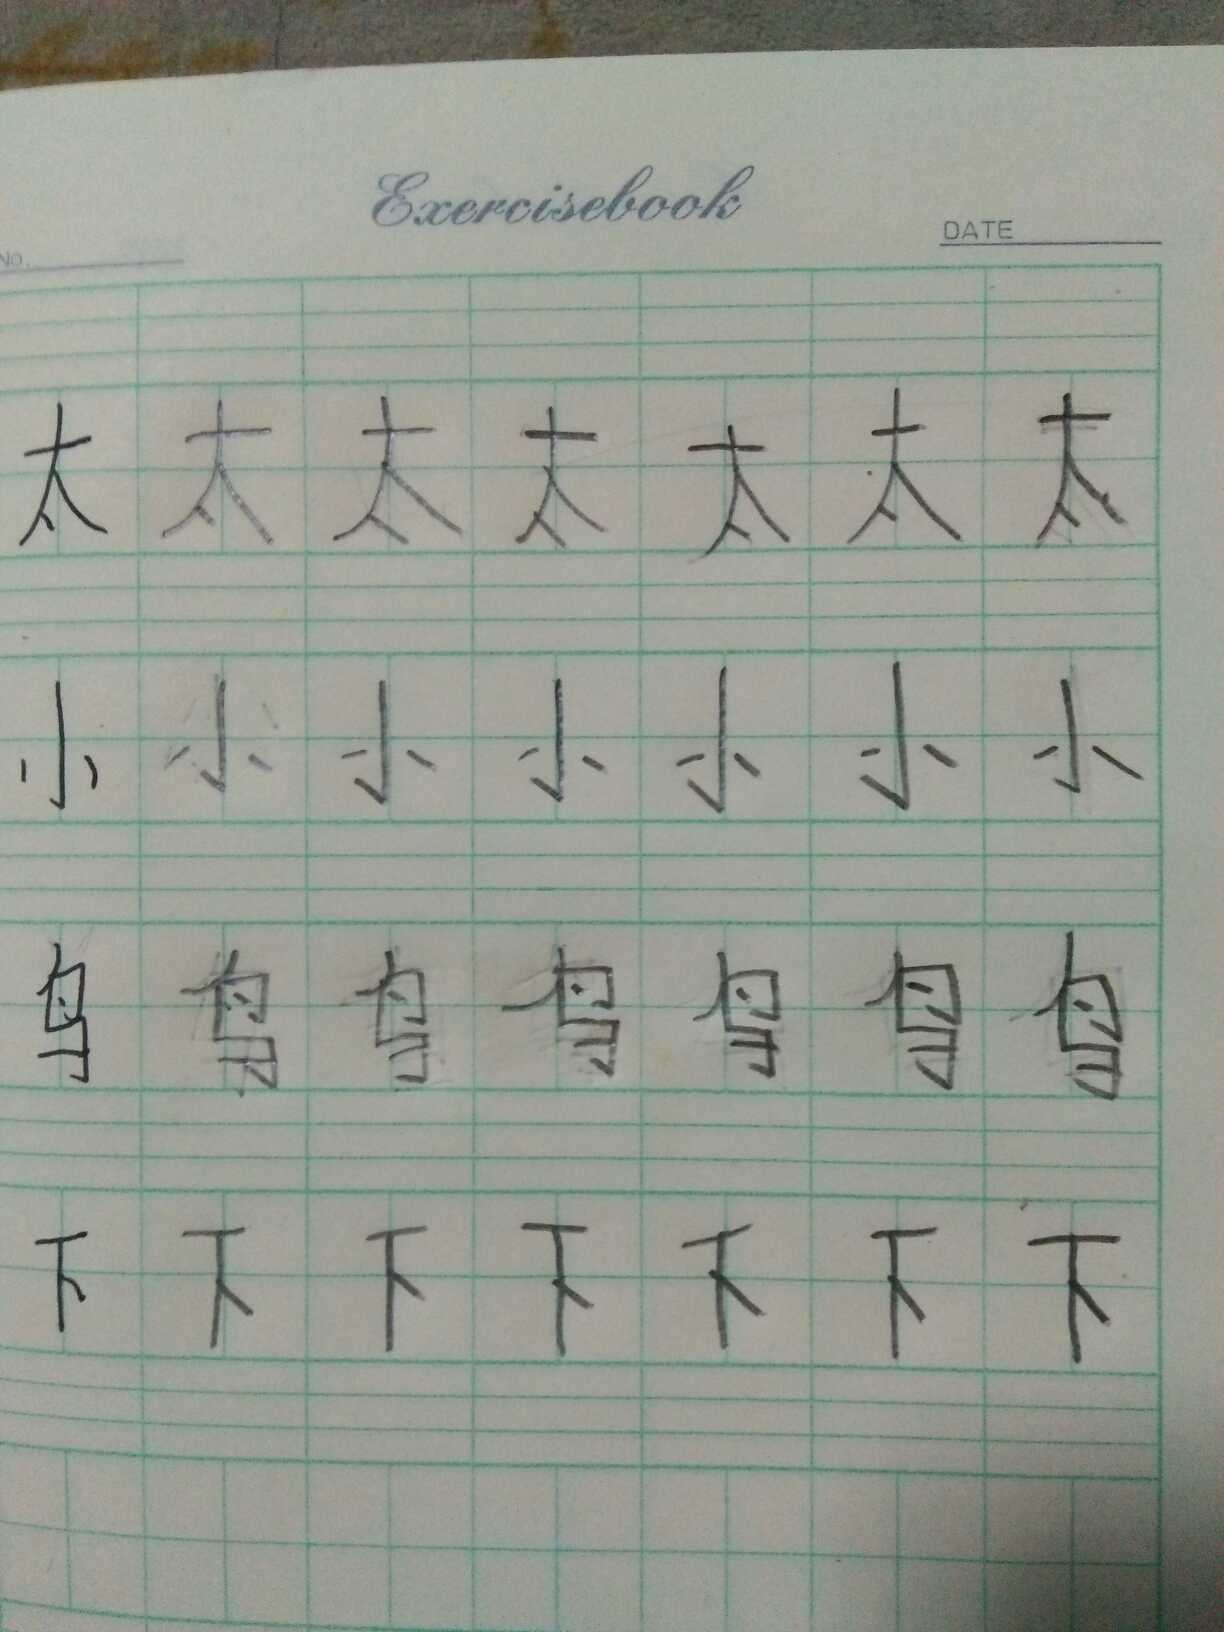 Exercisebook
No. DATE
太 太 太 太 太 太 太
小 小 小 小 小 小 小
鸟 鸟 鸟 鸟 鸟 鸟 鸟
下 下 下 下 下 下 下